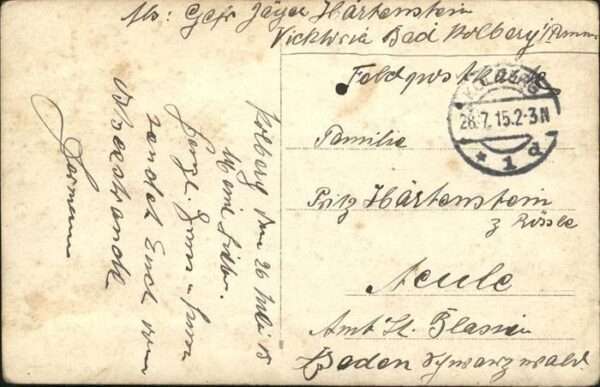 Abs: Gefr Jäger Härtenstein
Vicktoria Bad Kolberg i/Pomm
Feldpostkarte
KOLBERG
28.7.15.2-3N
* 1 d
Familie
Fritz Härtenstein
z Rössle
Aeule
Amt St. Blasien
Baden Schwarzwald
Kolberg den 26 Juli 15
Meine Lieben.
Herzl. Gruss u Kuss
sendet Euch vom
Ostseestrande
Hermann